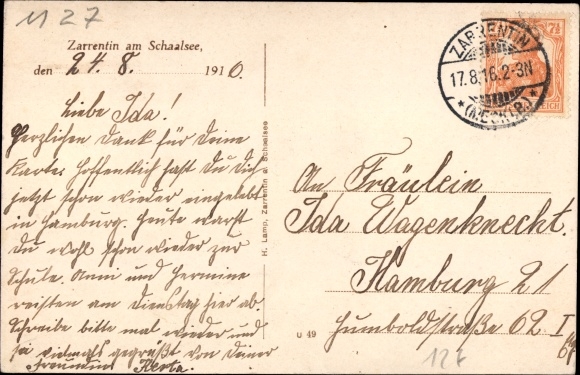 M 27
Zarrentin am Schaalsee,
den 24. 8. 1916.
Liebe Ida!
Herzlichen Dank für Deine
Karte. Hoffentlich hast Du Dich
jetzt schon wieder eingelebt
in Hamburg. Heute warst
Du wohl schon wieder zur
Schule. Anni und Hermine
reisten am Dienstag hier ab.
Schreibe bitte mal wieder und
sei vielmals gegrüßt von Deiner
Freundin Herta.
H. Lamp, Zarrentin a. Schaalsee
U 49
ZARRENTIN
17.8.16.2-3N
* (MECKLB.) *
7½
An Fräulein
Ida Wagenknecht.
Hamburg 21
Humboldstraße 62 I
127